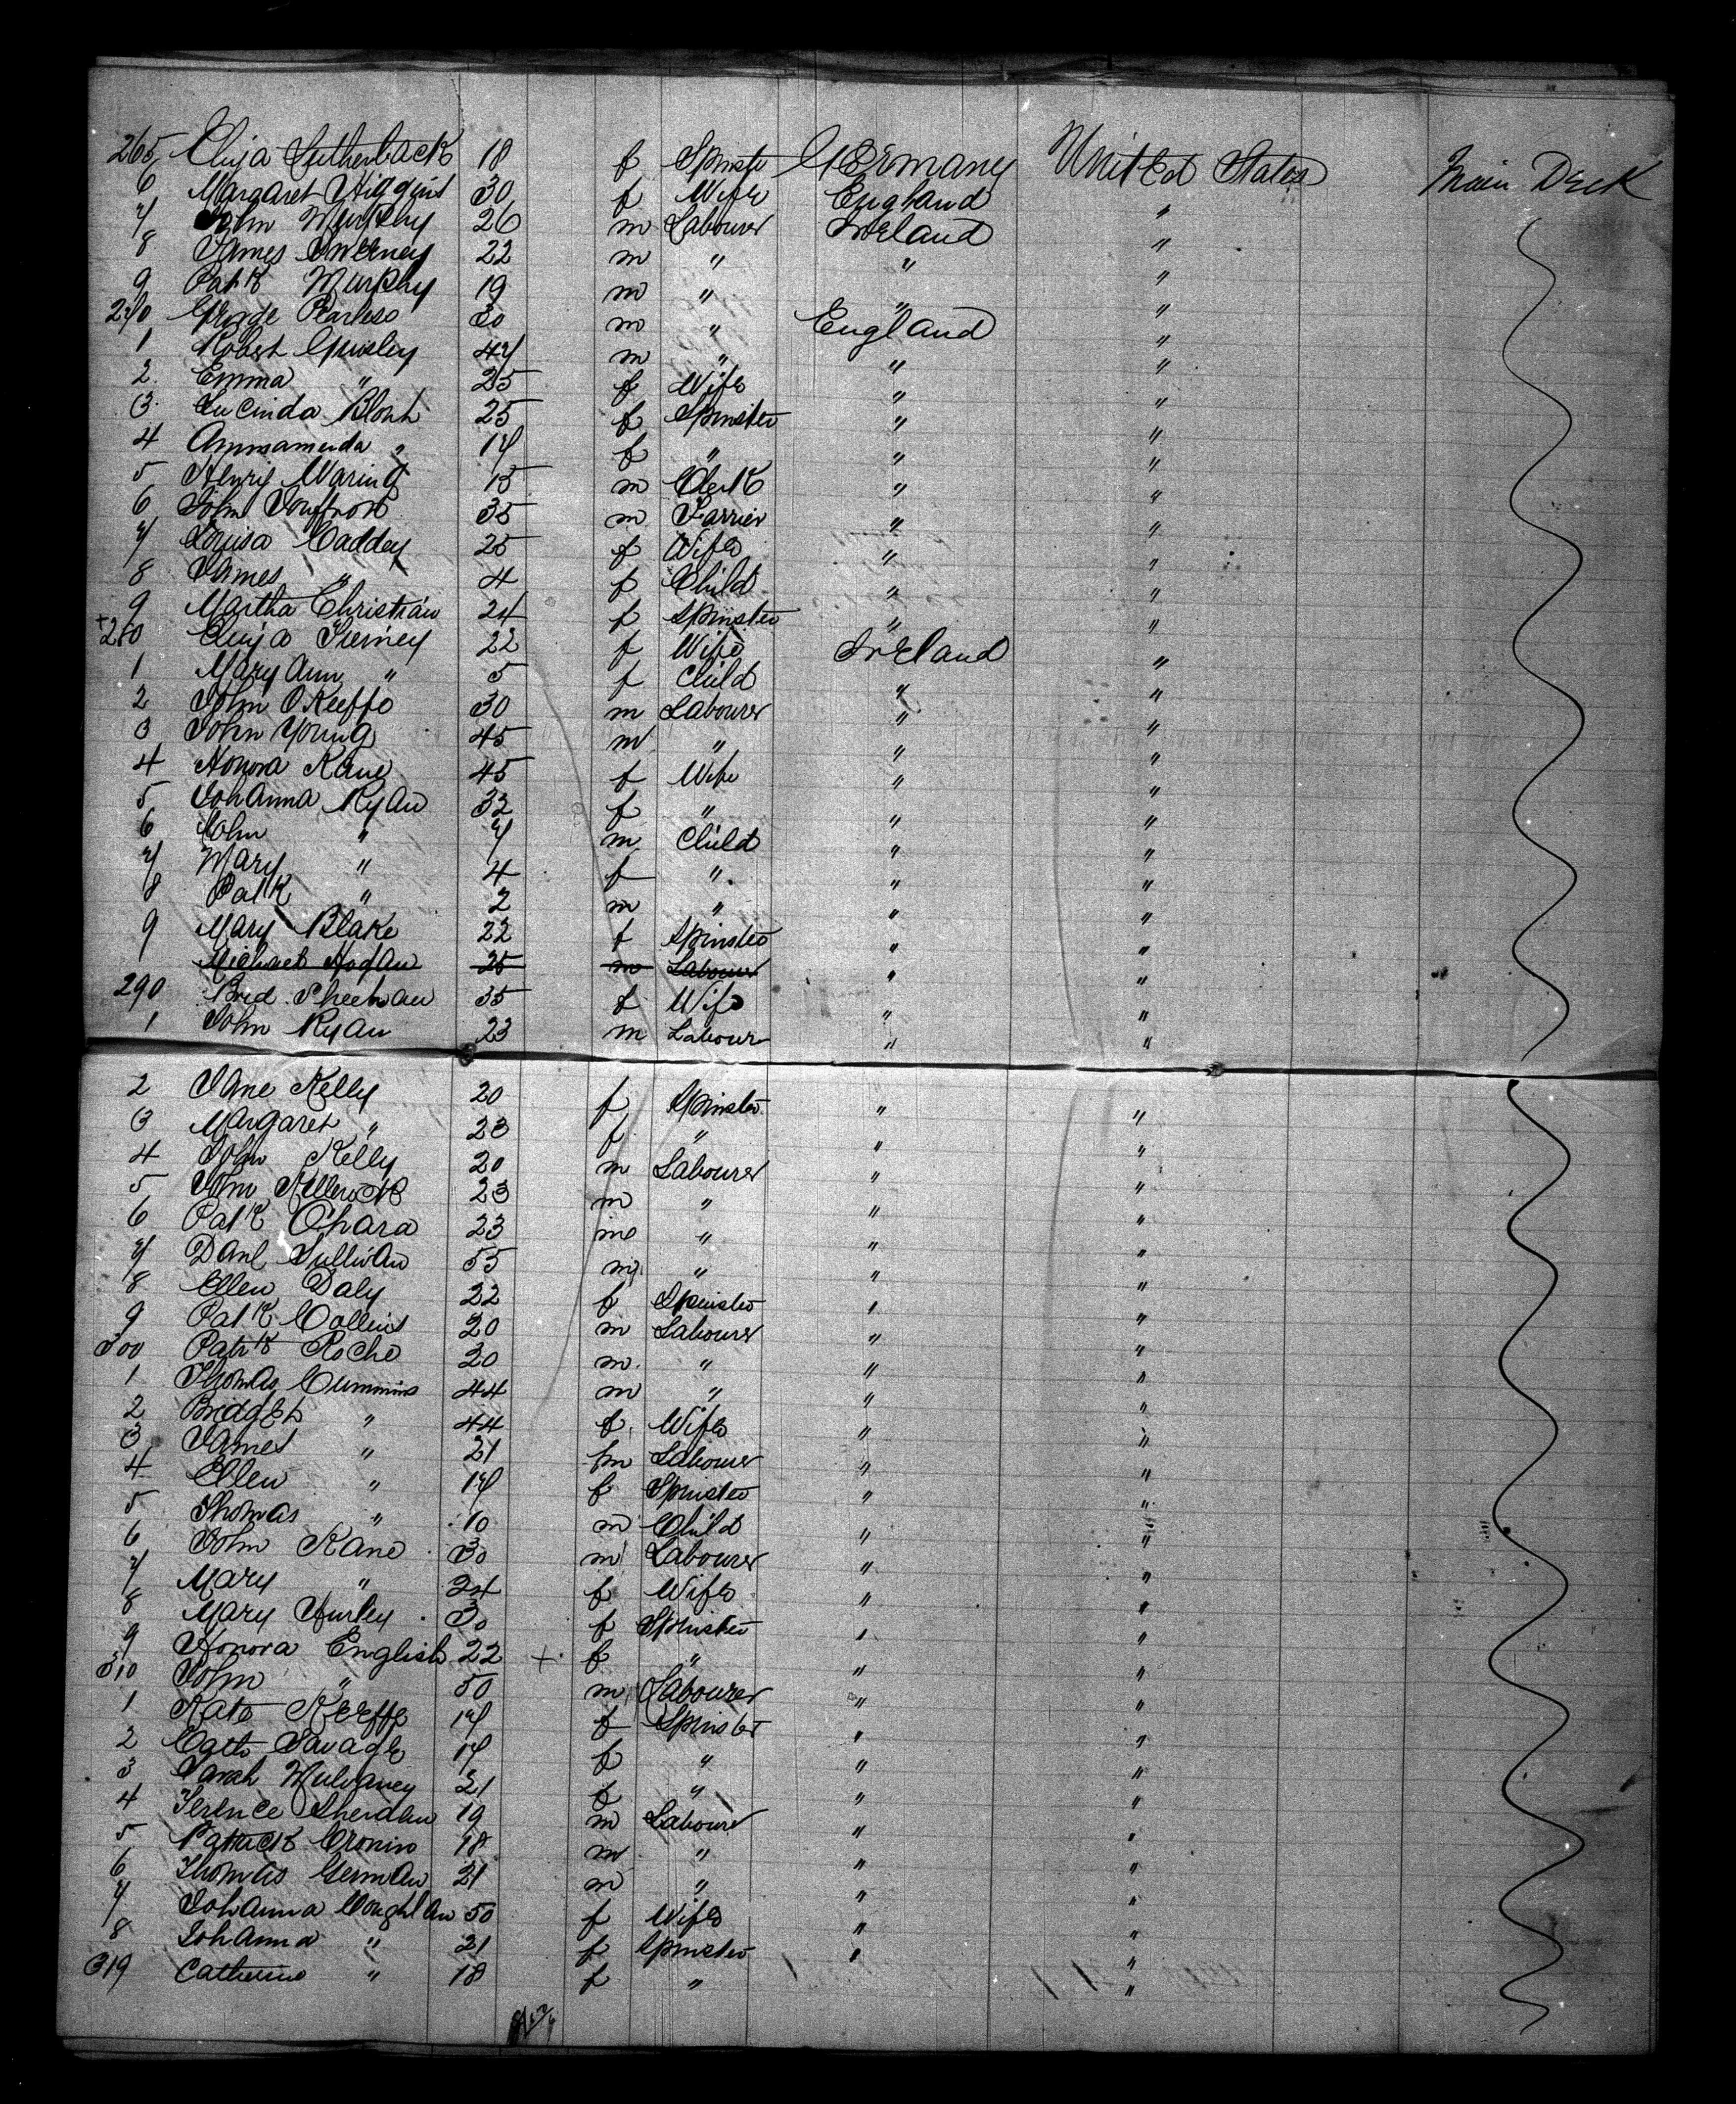 265 Eliza Lutherback 18 f Spinster Germany United States Main Deck
6 Margaret Higgins 30 f Wife England "
7 John Murphy 26 m Labourer Ireland "
8 James Sweeney 22 m " " "
9 Patk Murphy 19 m " " "
270 30 m " England "
1 Robert 47 m " " "
2 Emma " 25 f Wife " "
3 Lucinda 25 f Spinster " "
4 " 17 f " " "
5 Henry Waring 15 m Clerk " "
6 John 35 m Farrier " "
7 Louisa Caddey 25 f Wife " "
8 James " 4 f Child " "
9 Martha Christian 24 f Spinster " "
280 Eliza Tierney 22 f Wife Ireland "
1 Mary Ann " 5 f Child " "
2 John OKeeffe 30 m Labourer " "
3 John Young 45 m " " "
4 Honora Kane 45 f Wife " "
5 Johanna Ryan 32 f " " "
6 John " 7 m Child " "
7 Mary " 4 f " " "
8 Patk " 2 m " " "
9 Mary Blake 22 f Spinster " "
Michael Hogan 25 m Labourer " "
290 Brid Sheehan 35 f Wife " "
1 John Ryan 23 m Labourer " "
2 Jane Kelly 20 f Spinster " "
3 Margaret " 23 f " " "
4 John Kelly 20 m Labourer " "
5 23 m " " "
6 Patk Ohara 23 m " " "
7 Danl Sullivan 55 m " " "
8 Ellen Daly 22 f Spinster " "
9 Patk Collins 20 m Labourer " "
300 Patk Roche 20 m " " "
1 Thomas Cummins 44 m " " "
2 Bridget " 44 f Wife " "
3 James " 21 m Labourer " "
4 Ellen " 17 f Spinster " "
5 Thomas " 10 m Child " "
6 John Kane 30 m Labourer " "
7 Mary " 24 f Wife " "
8 Mary Hurley 30 f Spinster " "
9 Honora English 22 + f " " "
310 John " 50 m Labourer " "
1 Kate Keeffe 17 f Spinster " "
2 Cath Savage 17 f " " "
3 Sarah Mulvaney 21 f " " "
4 Terence Sheridan 19 m Labourer " "
5 Patrick Cronin 18 m " " "
6 Thomas German 21 m " " "
7 Johanna Coughlan 50 f Wife " "
8 Johanna " 21 f Spinster " "
319 Catherine " 18 f " "